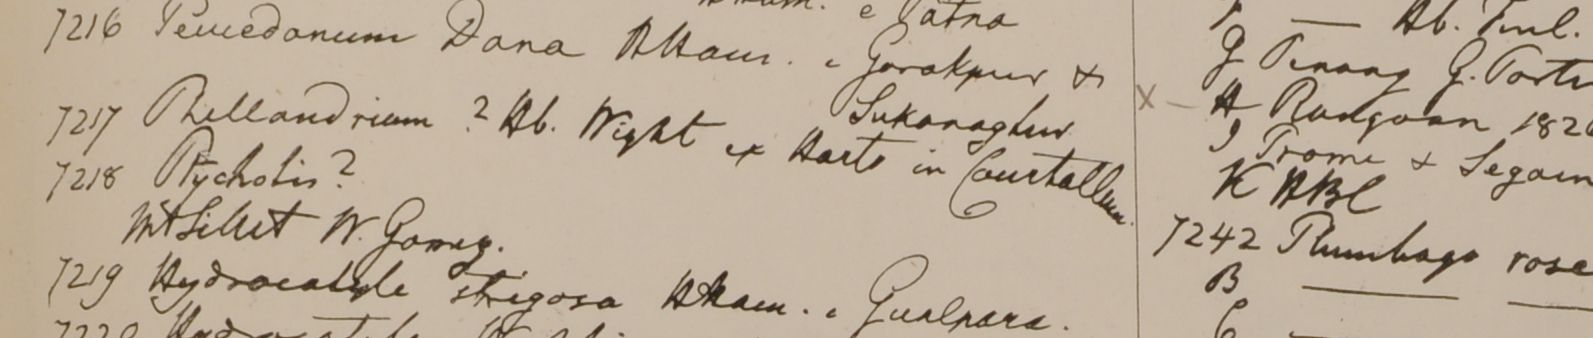 e Patna
7216 Peucedanum Dana HHam. e Gorakpur &
Sukanaghur
7217 Phellandrium ? Hb. Wight ex Horto in Courtallum.
7218 Ptychotis ?
Mt Sillet W. Gomez.
7219 Hydrocotyle strigosa HHam. e Gualpara.
7220 Hydrocotyle
F — Hb. Finl.
G Penang G. Porter
X — H Rangoon 182
I Prome & Segain
K HBC
7242 Plumbago rose
B — —
C —